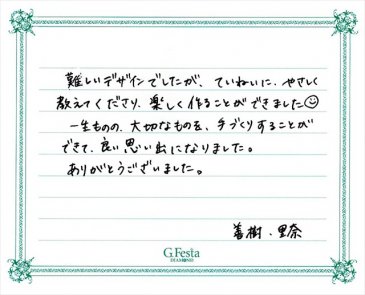 難しいデザインでしたが、ていねいに、やさしく
教えてくださり、楽しく作ることができました☺
一生ものの、大切なものを、手づくりすることが
できて、良い思い出になりました。
ありがとうございました。
善樹・里奈
G.Festa
DIAMOND